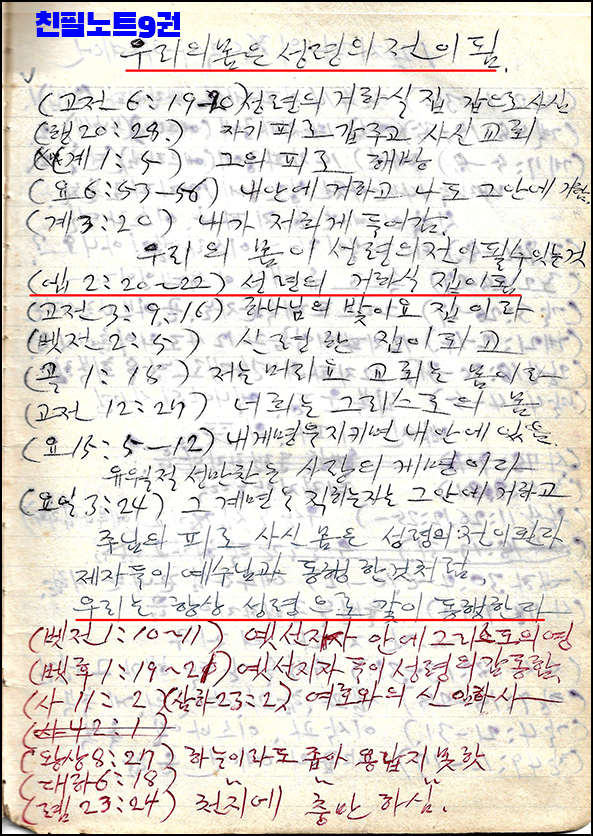 친필노트9권
우리의 몸은 성령의 전이 됨.
(고전 6:19-20) 성령의 거하실 집 값으로 사신
(행20:28) 자기 피로 값주고 사신 교회
(계1:5) 그의 피로 해방
(요6:53-56) 내 안에 거하고 나도 그 안에 거함.
(계3:20) 내가 저희게 들어감.
우리의 몸이 성령의 전이 될수 있는것
(엡 2:20~22) 성령의 거하실 집이 됨
(고전 3:9, 16) 하나님의 밭이요 집이라
(벳전 2:5) 신령한 집이 되고
(골 1:18) 저는 머리요 교회는 몸이라
(고전 12:27) 너희는 그리스도의 몸
(요15:5-12) 내 게명을 지키면 내 안에 있음.
유월절 성만찬은 사랑의 게명이라
(요일3:24) 그 계명을 직히는자는 그 안에 거하고
주님의 피로 사신 몸은 성령의 전이 된라
제자들이 예수님과 동행한것처럼.
우리는 항상 성령으로 같이 동행한다
(벳전1:10~11) 옛선지자 안에 그리스도의 영
(벳후1:19~21) 옛선지자들이 성령의 감동함.
(사 11:2) (삼하23:2) 여호와의 신 임하사
(사42:1)
(왕상8:27) 하늘이라도 좁아 용납지 못핫
(대하6:18) 〃 〃 〃
(렘23:24) 천지에 충만하심.